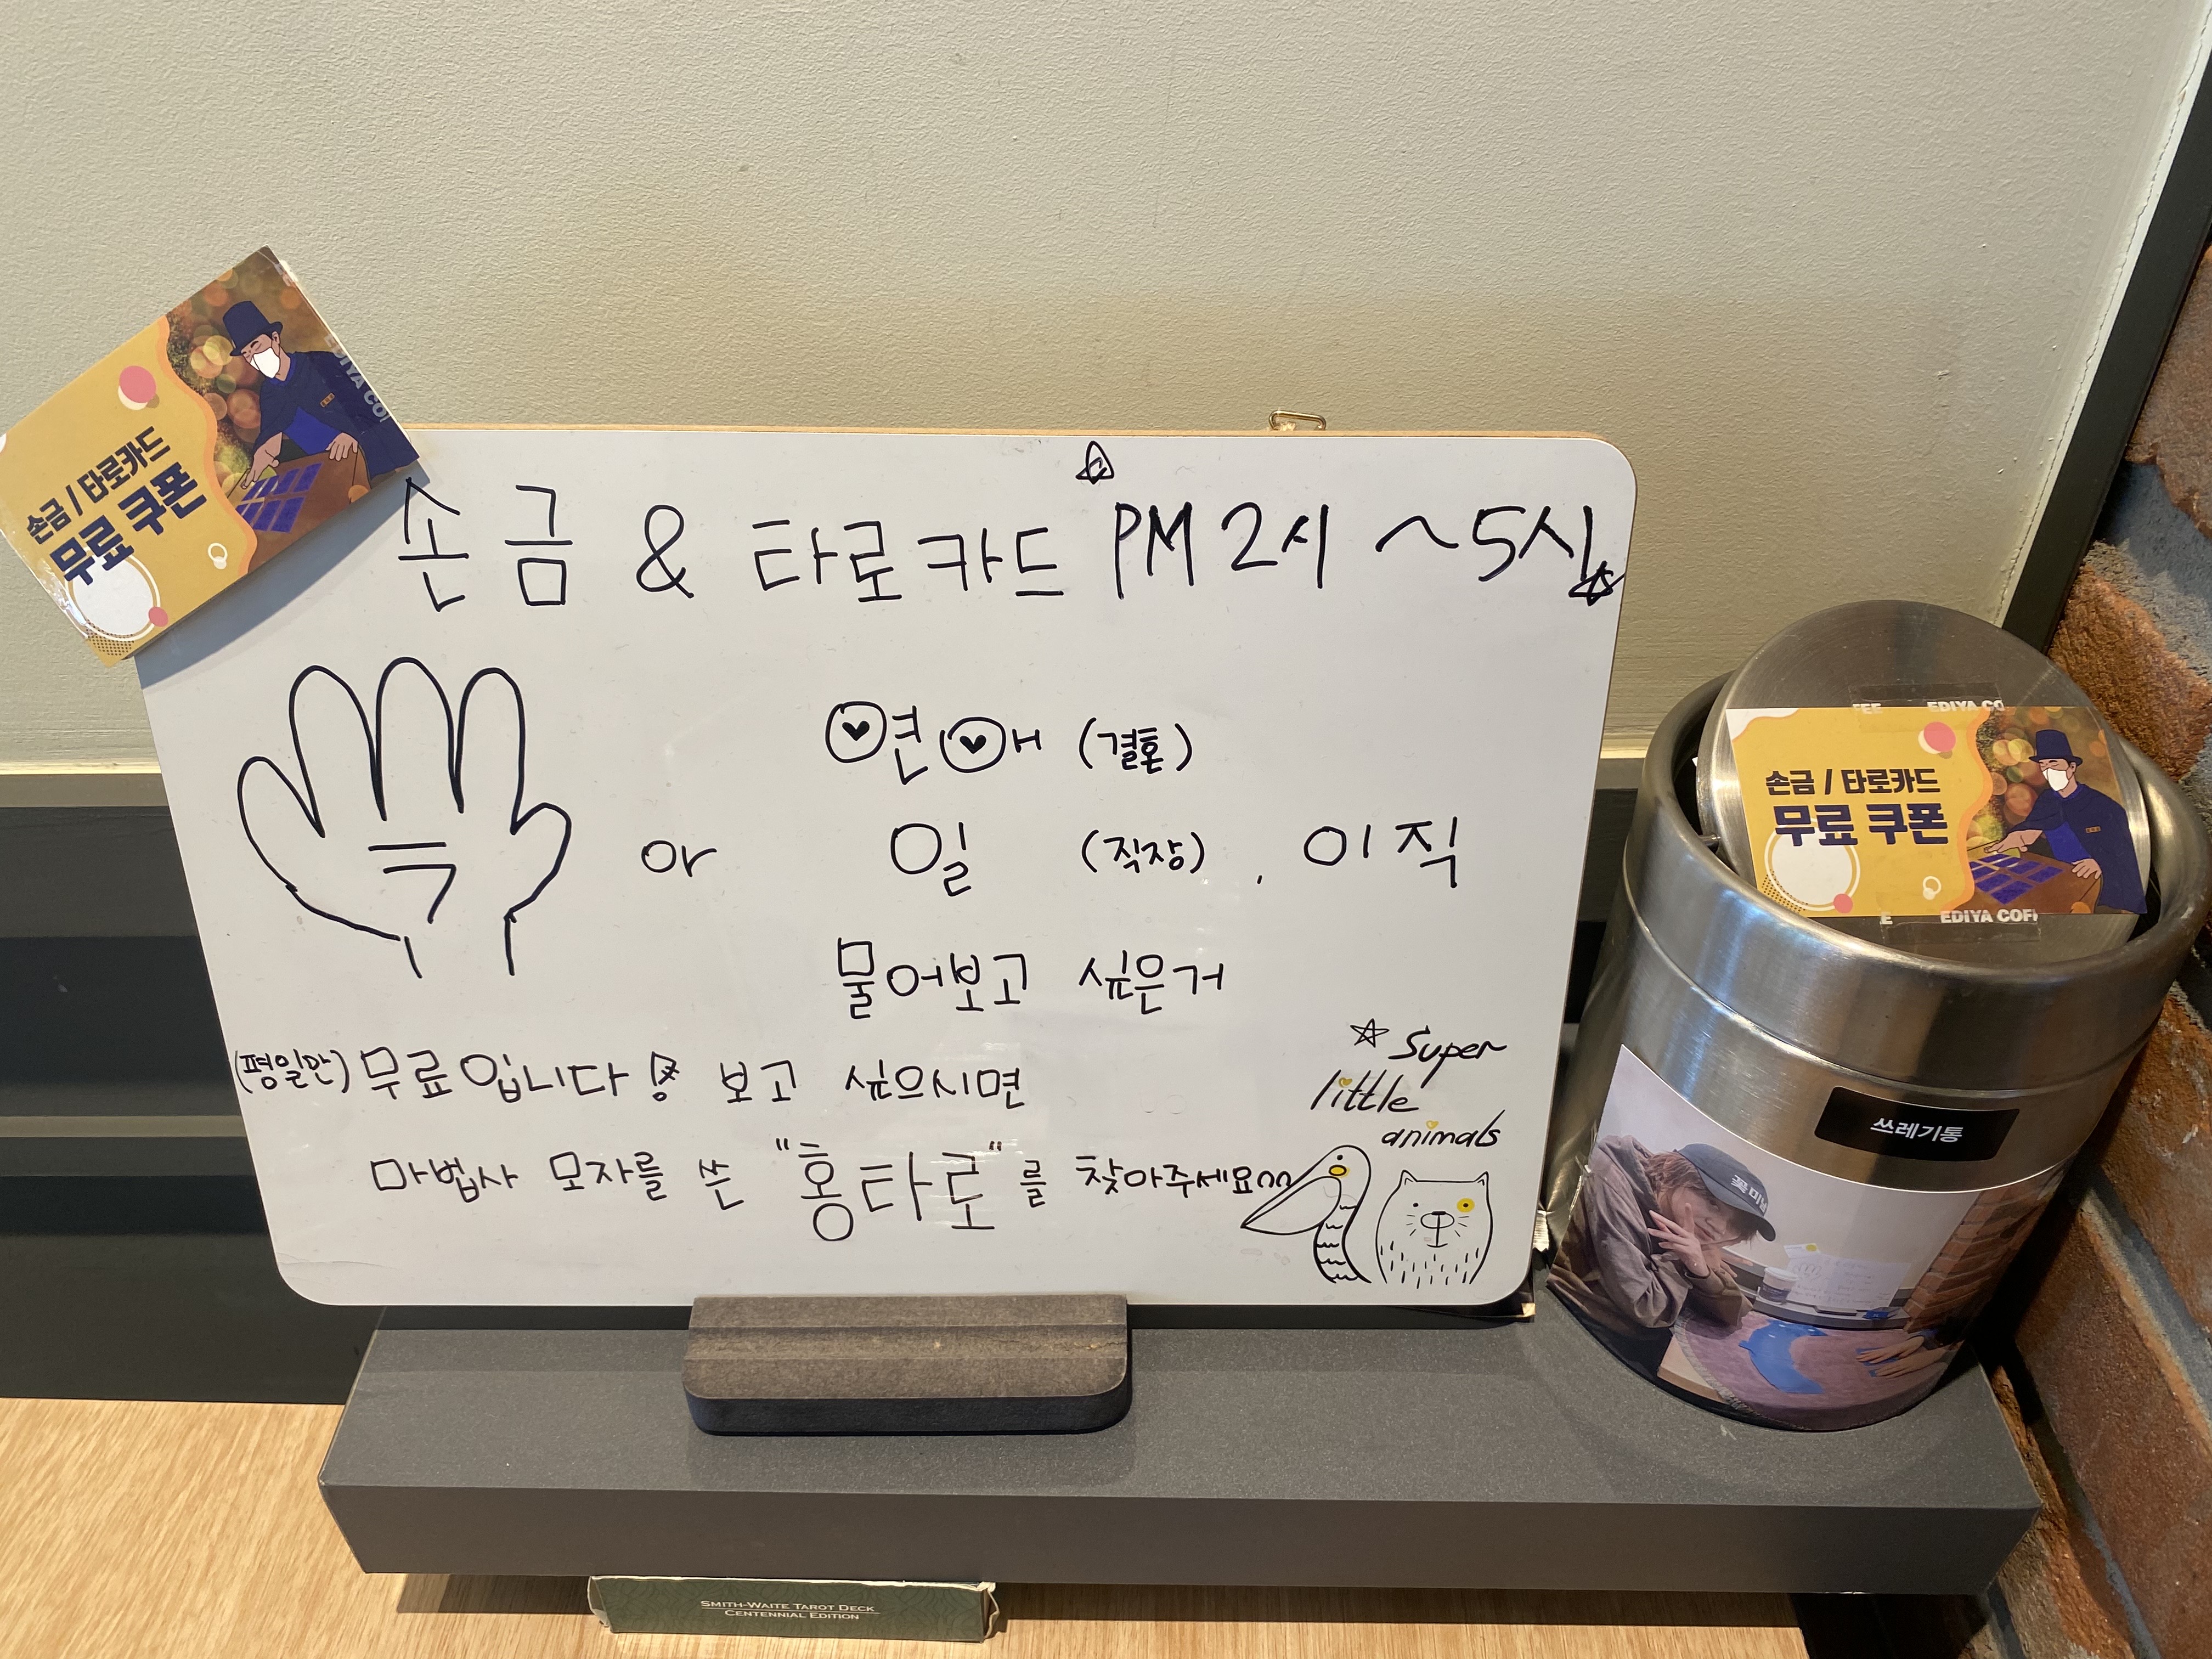 손금 / 타로카드
무료 쿠폰
손금 & 타로카드 PM 2시 ~5시
연애 (결혼)
or 일 (직장), 이직
물어보고 싶은거
(평일만) 무료입니다! 보고 싶으시면
마법사 모자를 쓴 "홍타로"를 찾아주세요^^
Super
little
animals
EDIYA CO
손금 / 타로카드
무료 쿠폰
EDIYA COF
쓰레기통
SMITH-WAITE TAROT DECK
CENTENNIAL EDITION